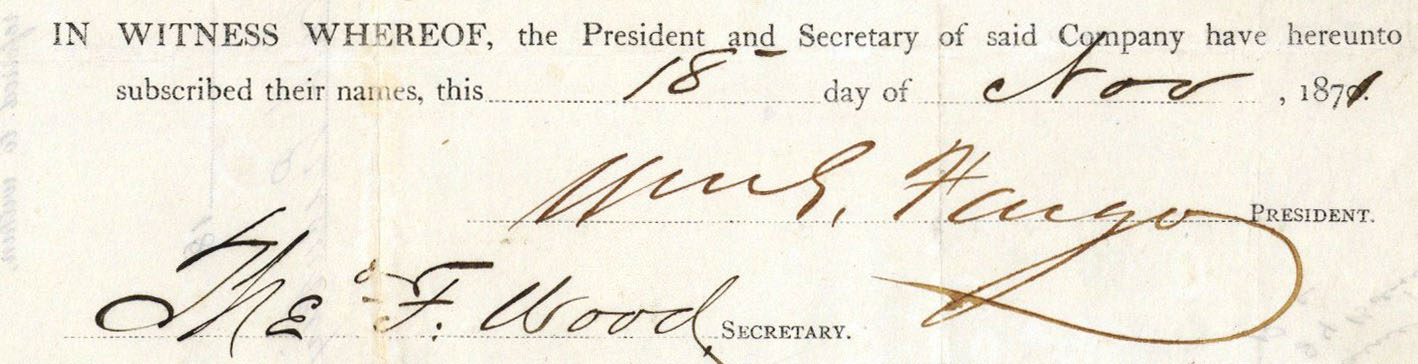 IN WITNESS WHEREOF, the President and Secretary of said Company have hereunto
subscribed their names, this 18 day of Nov, 1871.
Wm G. Fargo PRESIDENT.
F. Wood SECRETARY.